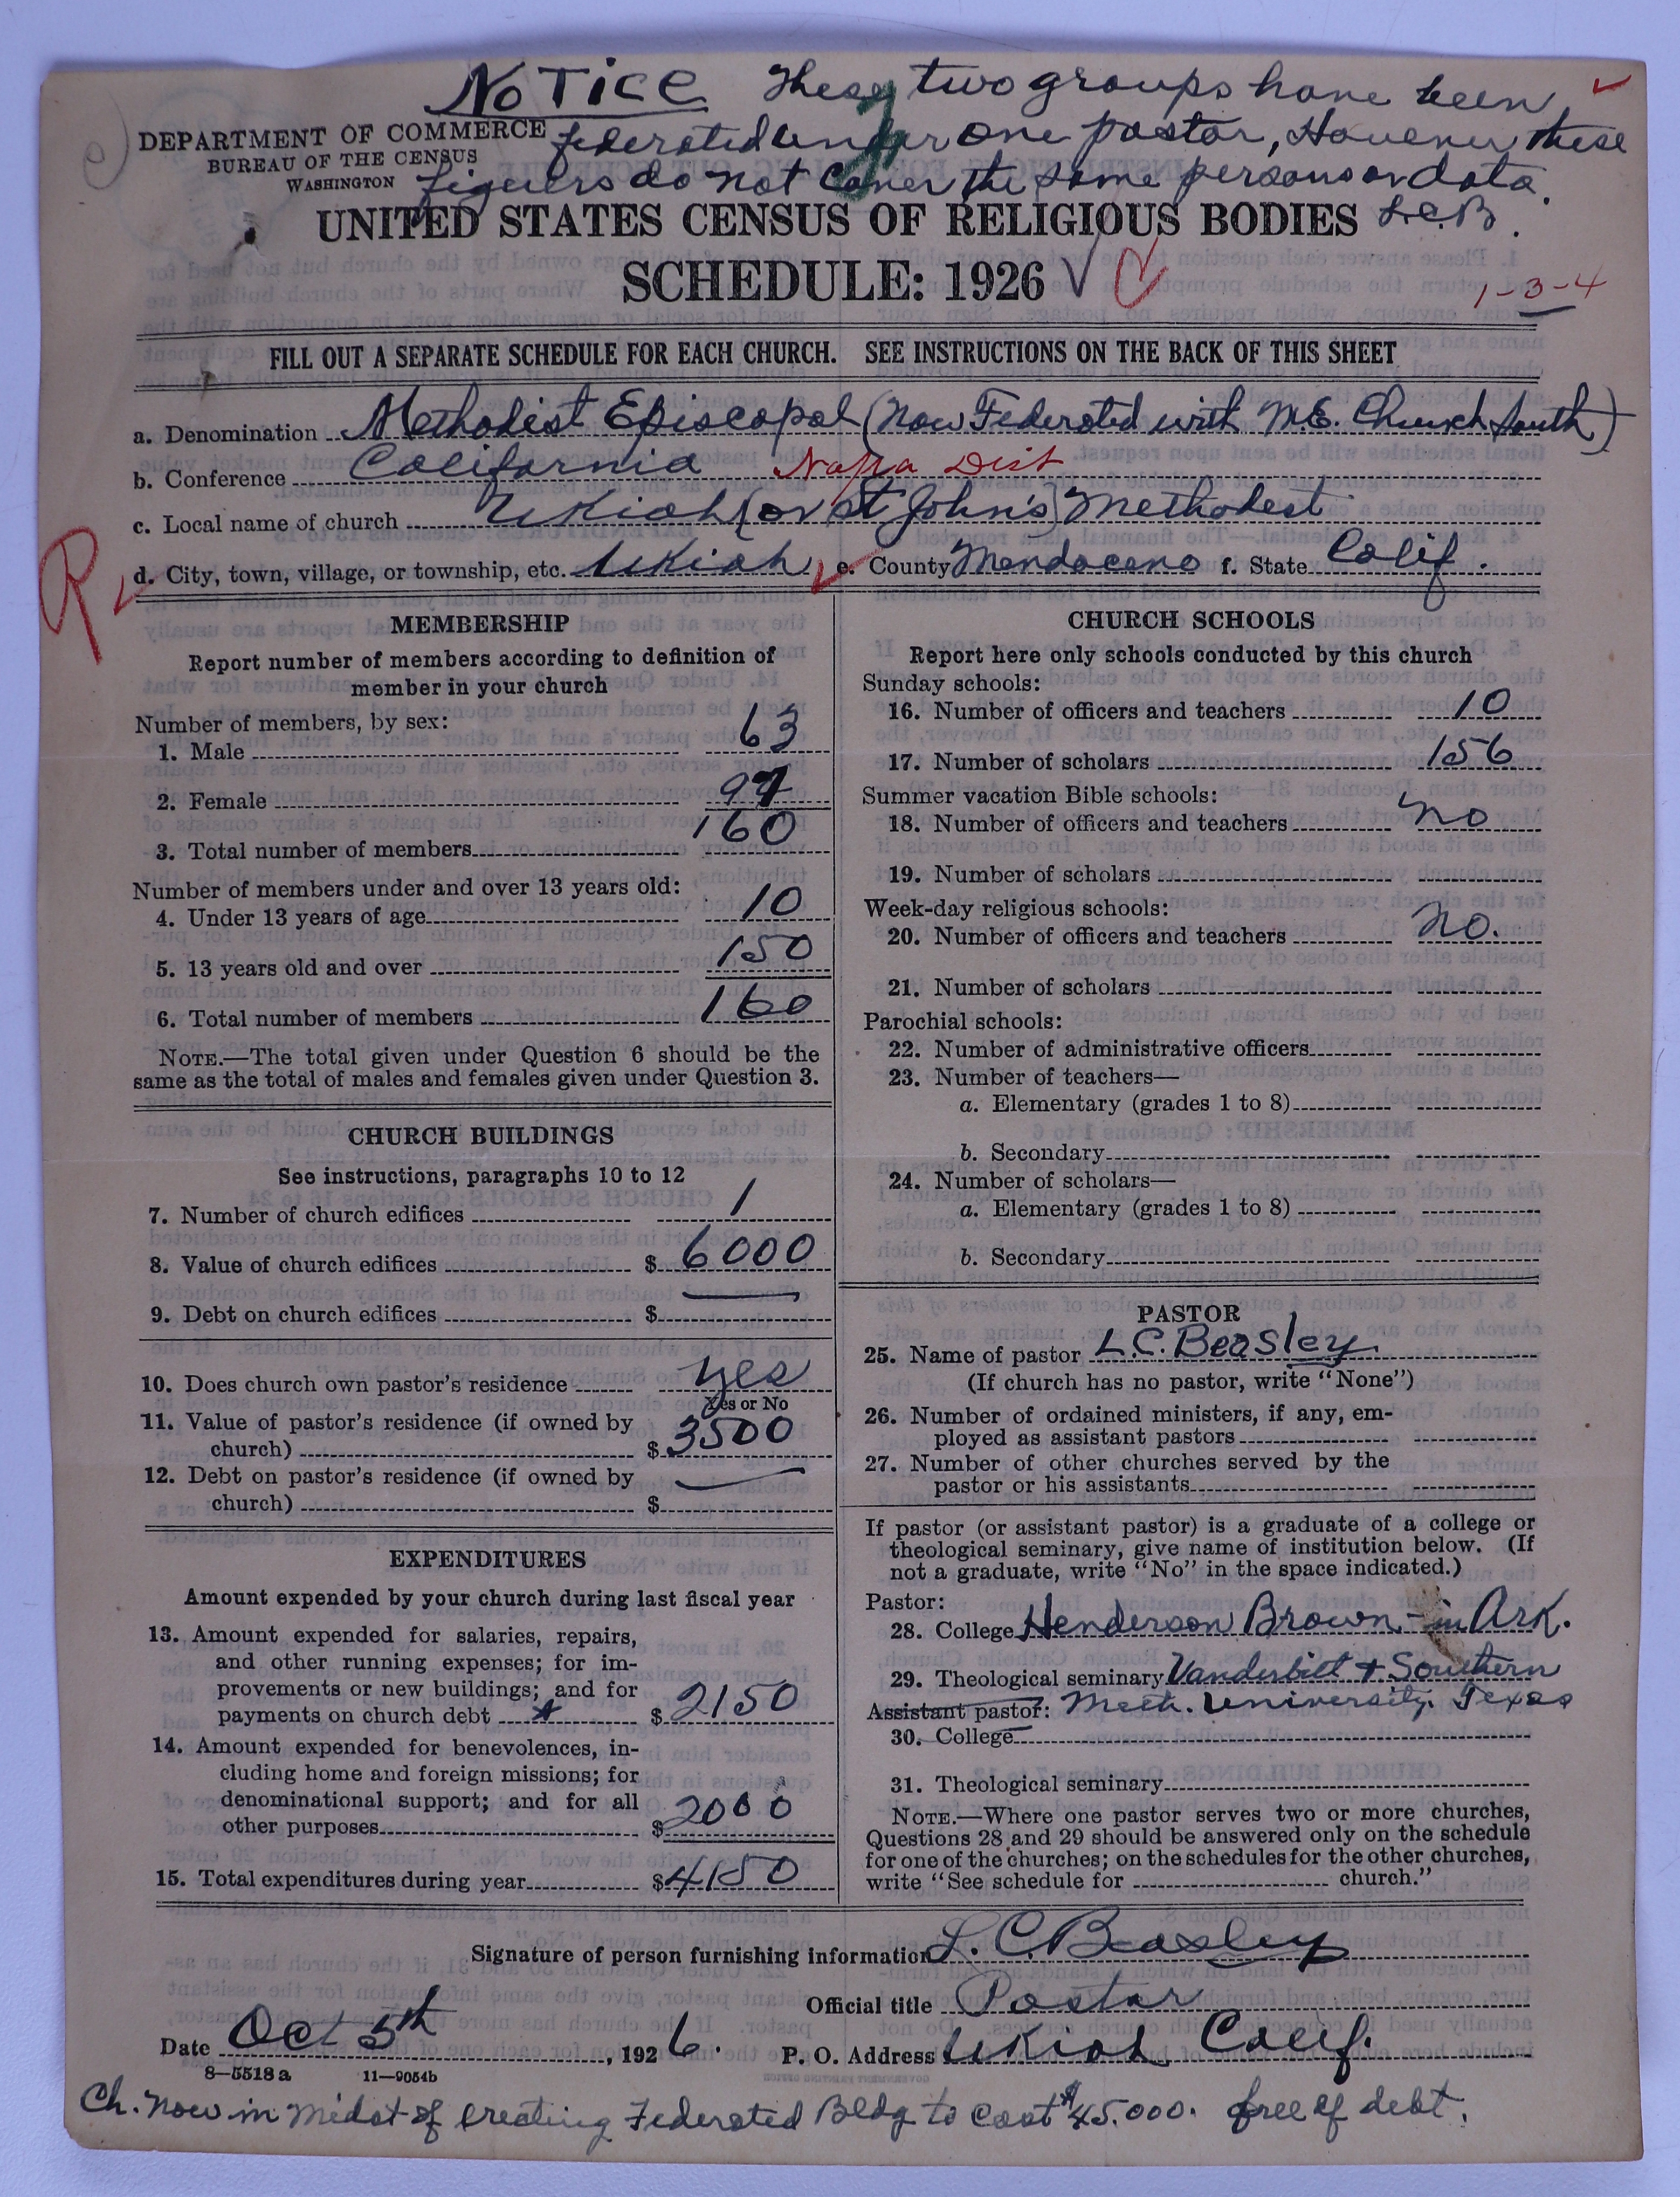 NOTICE These two groups have been
federated under one pastor, However these
figuers do not Cover the same persons or data.
L.C.B.
DEPARTMENT OF COMMERCE
BUREAU OF THE CENSUS
WASHINGTON
UNITED STATES CENSUS OF RELIGIOUS BODIES
SCHEDULE: 1926
1-3-4
FILL OUT A SEPARATE SCHEDULE FOR EACH CHURCH. SEE INSTRUCTIONS ON THE BACK OF THIS SHEET
a. Denomination Methodist Episcopal (now Federated with M.E. Church South)
b. Conference California Napa Dist
c. Local name of church Ukiah (or St John's) Methodist
R
d. City, town, village, or township, etc. Ukiah e. County Mendoceno f. State Calif.
MEMBERSHIP
Report number of members according to definition of
member in your church
Number of members, by sex:
1. Male 63
2. Female 97
3. Total number of members 160
Number of members under and over 13 years old:
4. Under 13 years of age 10
5. 13 years old and over 150
6. Total number of members 160
NOTE.—The total given under Question 6 should be the
same as the total of males and females given under Question 3.
CHURCH BUILDINGS
See instructions, paragraphs 10 to 12
7. Number of church edifices 1
8. Value of church edifices $ 6000
9. Debt on church edifices $ —
10. Does church own pastor's residence yes
Yes or No
11. Value of pastor's residence (if owned by
church) $ 3500
12. Debt on pastor's residence (if owned by
church) $ —
EXPENDITURES
Amount expended by your church during last fiscal year
13. Amount expended for salaries, repairs,
and other running expenses; for im-
provements or new buildings; and for
payments on church debt $ 2150
14. Amount expended for benevolences, in-
cluding home and foreign missions; for
denominational support; and for all
other purposes $ 2000
15. Total expenditures during year $ 4150
CHURCH SCHOOLS
Report here only schools conducted by this church
Sunday schools:
16. Number of officers and teachers 10
17. Number of scholars 156
Summer vacation Bible schools:
18. Number of officers and teachers no
19. Number of scholars
Week-day religious schools:
20. Number of officers and teachers no.
21. Number of scholars
Parochial schools:
22. Number of administrative officers
23. Number of teachers—
a. Elementary (grades 1 to 8)
b. Secondary
24. Number of scholars—
a. Elementary (grades 1 to 8)
b. Secondary
PASTOR
25. Name of pastor L.C. Beasley
(If church has no pastor, write "None")
26. Number of ordained ministers, if any, em-
ployed as assistant pastors
27. Number of other churches served by the
pastor or his assistants
If pastor (or assistant pastor) is a graduate of a college or
theological seminary, give name of institution below. (If
not a graduate, write "No" in the space indicated.)
Pastor:
28. College Henderson Brown - in Ark.
29. Theological seminary Vanderbilt + Southern
Assistant pastor: Meth. University. Texas
30. College
31. Theological seminary
NOTE.—Where one pastor serves two or more churches,
Questions 28 and 29 should be answered only on the schedule
for one of the churches; on the schedules for the other churches,
write "See schedule for church."
Signature of person furnishing information L. C. Beasley
Official title Pastor
Date Oct 5th, 1926. P. O. Address Ukiah Calif.
8—5518 a 11—9054b
Ch. now in midst of Creating Federated Bldg to Cost $45.000. free of debt.